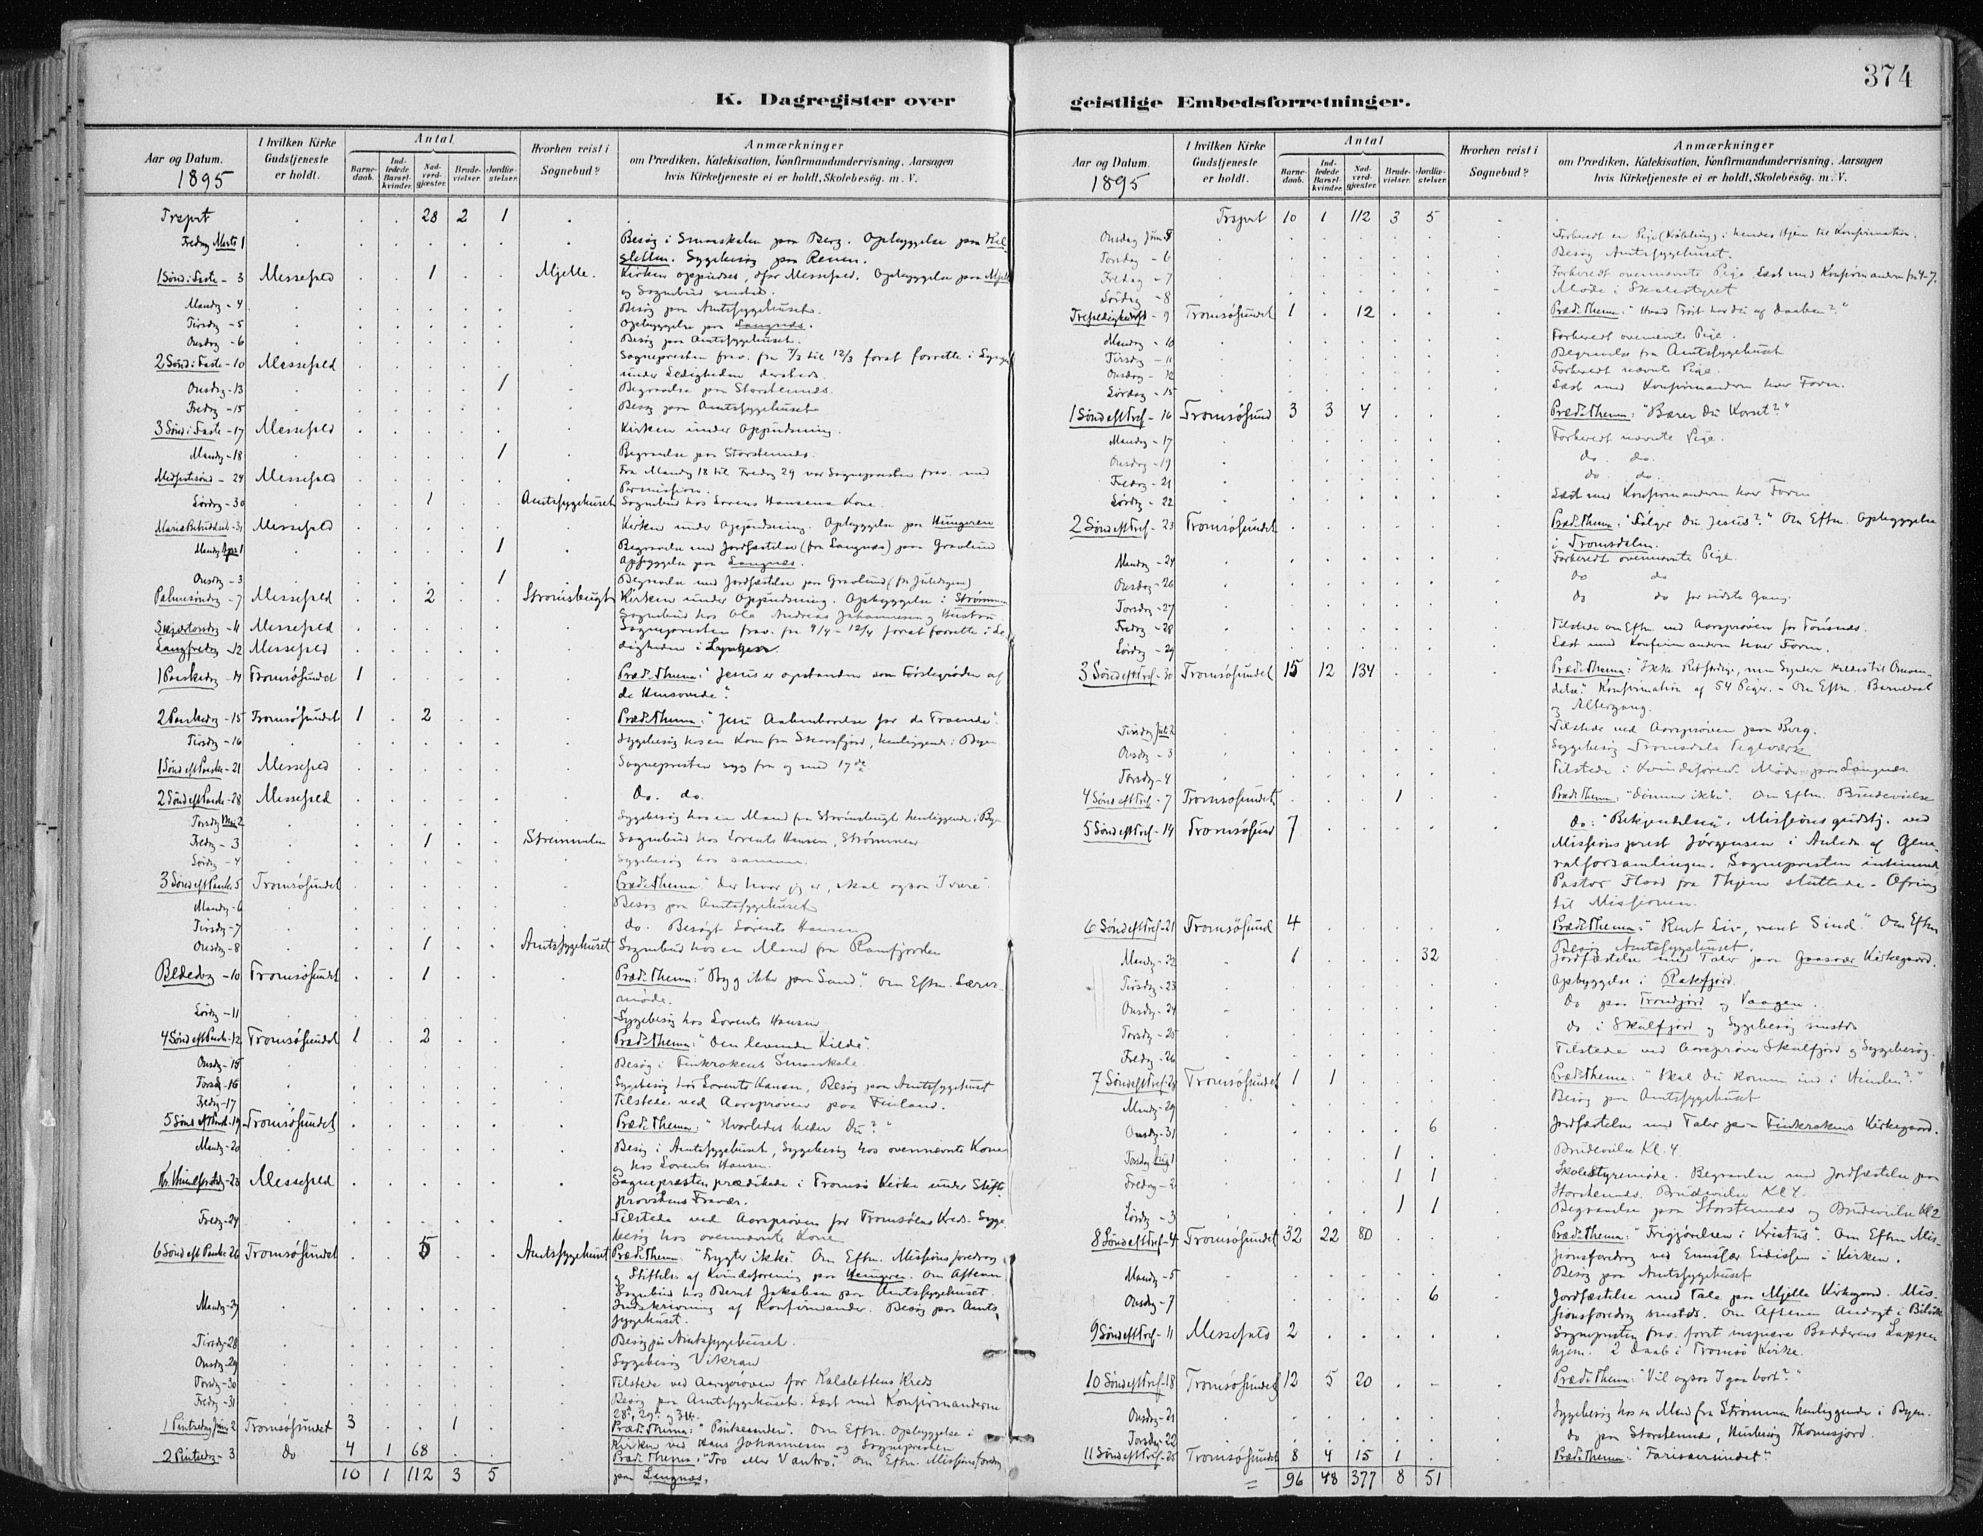 374
K. Dagregister over geistlige Embedsforretninger.
Aar og Datum. 1895
I hvilken Kirke Gudstjeneste er holdt.
Antal
Barnedaab.
Indledede Barselkvinder.
Nadverdgjæster.
Brudevielser.
Jordfæstelser.
Hvorhen reist i Sognebud?
Anmærkninger
om Prædiken, Katekisation, Konfirmandundervisning, Aarsagen
hvis Kirketjeneste ei er holdt, Skolebesøg. m. V.
Trspt . . . 28 2 1
Fredag Marts 1 Besøg i Smaaskolen paa Berg. Opbyggelse paa
. Sygebesøg paa Renen.
1 Sønd. i Faste - 3 Messefald 1 Mjelle. Kirken oppudses, derfor Messefald. Opbyggelse paa Mjelle
og Sognebud smstd.
Mandag - 4 Besøg paa Amtssygehuset.
Tirsdag - 5 Opbyggelse paa Langnæs.
Onsdag - 6 Besøg paa Amtssygehuset.
2 Sønd. i Faste - 10 Messefald Sognepresten frav. fra 7/3 til 12/3 forat forrette i
under Ledigheden dersteds.
Onsdag - 13 1 Begravelse paa Storstennes.
Fredag - 15 Besøg paa Amtssygehuset
3 Sønd. i Faste - 17 Messefald Kirken under Oppudsning.
Mandag - 18 1 Begravelse paa Storstennes.
Midfastesønd - 24 Messefald Fra Mandag 18 til Fredag 29 var Sognepresten frav. med
Permission.
Lørdag - 30 1 Amtssygehuset Sognebud hos Lorens Hansens Kone.
Mariæ Bebudelse - 31 Messefald Kirken under Oppudsning. Opbyggelse paa Hungeren
Mandag Apr. 1 1 Begravelse med Jordfæstelse (fra Langnæs) paa Gravlund
Opbyggelse paa Langnæs.
Onsdag - 3 1 Begravelse med Jordfæstelse paa Gravlund
Palmesøndag - 7 Messefald 2 Strømsbugt Kirken under Oppudsning. Opbyggelse i Strømmen
Sognebud hos Ole Andreas Johannessen og Hustru
Skjærtorsdag - 11 Messefald Sognepresten frav. fra 9/4 - 12/4 forat forrette i Le-
Langfredag - 12 Messefald digheden i Lyngen.
1 Paaskedag - 14 Tromsøsundet 1 Præd. Thema: "Jesus er opstanden som Førstegrøden af
de Hensovede".
2 Paaskedag - 15 Tromsøsundet 1 . 2 Præd. Thema: "Jesu Aabenbarelse for de Troende".
Tirsdag - 16 Sygebesøg hos en Kone fra , henliggende i Byen
1 Sønd eft Paaske - 21 Messefald Sognepresten syg fra og med 17de
2 Sønd eft Paaske - 28 Messefald Do. do.
Torsdag Mai 2 Sygebesøg hos en Mand fra Strømsbugt henliggende i Byen
Fredag - 3 1 Strømmen Sognebud hos Lorents Hansen, Strømmen
Lørdag - 4 Sygebesøg hos samme.
3 Sønd eft Paaske 5 Tromsøsundet Præd. Thema: "Der hvor jeg er, skal ogsaa I være".
Mandag - 6 Besøg paa Amtssygehuset
Tirsdag - 7 do. Besøgt Lorents Hansen
Onsdag - 8 1 Amtssygehuset Sognebud hos en Mand fra Ramfjorden
Bededag - 10 Tromsøsundet 1 Præd. Thema: "Byg ikke paa Sand". Om Eftm. Lærer-
møde.
Lørdag - 11 Sygebesøg hos Lorents Hansen
4 Sønd eft Paaske - 12 Tromsøsundet 1 . 2 Præd. Thema: "Den levende Kilde".
Onsdag - 15 Besøg i Finkrokens Smaaskole.
Torsdag - 16 Sygebesøg hos Lorents Hansen, Besøg paa Amtssygehuset
Fredag - 17 Tilstede ved Aarsprøven paa Finland.
5 Sønd eft Paask. - 19 Tromsøsundet Præd. Thema: "Hvorledes beder Du?"
Mandag - 20 Besøg i Amtssygehuset, Sygebesøg hos ovennævnte Kone
og hos Lorents Hansen.
Kr. Himmelfartsdag - 23 Messefald Sognepresten prædikede i Tromsø Kirke under Stifts-
provstens Fravær.
Fredag - 24 Tilstede ved Aarsprøven for Tromsøens Kreds. Syge-
besøg hos ovennævnte Kone
6 Sønd eft Paaske 26 Tromsøsundet 5 Amtssygehuset Præd. Thema: "Frygt ikke". Om Eftm. Missionsforedrag
og Stiftelse af Kvindeforening paa Hungeren. Om Aftenen
Sognebud hos Bernt Jakobsen paa Amtssygehuset.
Mandag - 27 Indskrivning af Konfirmander. Besøg paa Amts-
sygehuset.
Tirsdag - 28 Besøg paa Amtssygehuset.
Onsdag - 29 Sygebesøg Vikran
Torsdag - 30 Tilstede ved Aarsprøven for Kalslettens Kreds
Fredag - 31 Besøg paa Amtssygehuset. Læst med Konfirmanderne
28de, 29de og 31te.
1 Pintsedag Juni 2 Tromsøsundet 3 . . 1 Præd. Thema: "Pintseaanden". Om Eftm. Opbyggelse i
Kirken ved Hans Johannesen og Sognepresten
2 Pintsedag - 3 do 4 1 68 Præd. Thema: "Tro eller Vantro". Om Eftm. Missionsforedrag
10 1 112 3 5 paa Langnæs.
Aar og Datum. 1895
I hvilken Kirke Gudstjeneste er holdt.
Antal
Barnedaab.
Indledede Barselkvinder.
Nadverdgjæster.
Brudevielser.
Jordfæstelser.
Hvorhen reist i Sognebud?
Anmærkninger
om Prædiken, Katekisation, Konfirmandundervisning, Aarsagen
hvis Kirketjeneste ei er holdt, Skolebesøg. m. V.
Trspt 10 1 112 3 5
Onsdag Juni 5 Forberedt en Pige i hendes Hjem til Konfirmation.
Torsdag - 6 Besøg Amtssygehuset.
Fredag - 7 Forberedt ovennævnte Pige. Læst med Konfirmanderne fra 4-7.
Lørdag - 8 Møde i Skolestyret
Trefoldighedsfest - 9 Tromsøsundet 1 . 12 Præd. Thema: "Hvad Trøst har du af Daaben?"
Mandag - 10 Forberedt ovennævnte Pige.
Tirsdag - 11 Begravelse fra Amtssygehuset
Onsdag - 12 Forberedt nævnte Pige.
Lørdag - 15 Læst med Konfirmanderne hver Form.
1 Sønd eft Tref - 16 Tromsøsund 3 3 4 Præd. Thema: "Bærer Du Korset?"
Mandag - 17 Forberedt nævnte Pige.
Onsdag - 19 do. do.
Fredag - 21 do. do.
Lørdag - 22 Læst med Konfirmanderne hver Form
2 Sønd eft Tref - 23 Tromsøsundet Præd. Thema: "Følger Du Jesus?". Om Eftm. Opbyggelse
i Tromsdalen.
Mandag - 24 Forberedt ovennævnte Pige.
Onsdag - 26 do do
Torsdag - 27 do do for sidste Gang.
Fredag - 28 Tilstede om Eftm. ved Aarsprøven for Tønsnes.
Lørdag - 29 Læst med Konfirmanderne hver Form.
3 Sønd eft Tref - 30 Tromsøsundet 15 12 134 Præd. Thema: "Ikke Retfærdige, men Syndere kaldes til Omven-
delse". Konfirmation af 54 Piger. - Om Eftm. Barnedaab
og Altergang.
Tirsdag Juli 2 Tilstede ved Aarsprøven paa Berg.
Onsdag - 3 Sygebesøg Tromsdals Teglværk
Torsdag - 4 Tilstede i Kvindeforen. Møde paa Langnæs.
4 Sønd eft Tref - 7 Tromsøsundet 1 Præd. Thema: "Dømmer ikke". Om Eftm. Brudevielse
5 Sønd eft Tref - 14 Tromsøsund 7 do: "Bekjendelsen". Missionsgudstj. ved
Missionsprest Jørgensen i Anledn af Gene-
ralforsamlingen. Sognepresten intimerede
Pastor Flood fra Thjem sluttede. Ofring
til Missionen.
6 Sønd eft Tref - 21 Tromsøsund 4 Præd. Thema: "Rent Liv, rent Sind". Om Eftm
Besøg Amtssygehuset.
Mandag - 22 1 32 Jordfæstelse med Taler paa Gaasvær Kirkegaard.
Tirsdag - 23 Opbyggelse i Rekefjord.
Onsdag - 24 do paa Tromfjord og Vaagen.
Torsdag - 25 do i Skulfjord og Sygebesøg smstds
Fredag - 26 Tilstede ved Aarsprøve Skulfjord og Sygebesøg.
7 Sønd eft Tref - 28 Tromsøsundet 1 1 Præd. Thema: "Skal Du komme ind i Himlen?"
Mandag - 29 Besøg paa Amtssygehuset
Onsdag - 31 6 Jordfæstelse med Taler paa Finkrokens Kirkegaard.
Torsdag Aug 1 1 Brudevielse Kl. 4.
Fredag - 2 1 1 Skolestyremøde. Begravelse med Jordfæstelse paa
Storstennes. Brudevielse Kl 4.
Lørdag - 3 1 1 Begravelse paa Storstennes og Brudevielse Kl 2
8 Sønd eft Tref - 4 Tromsøsundet 32 22 80 Præd. Thema: "Frigjørelsen i Kristus". Om Eftm Mis-
sionsforedrag ved Emissær Eidissen i Kirken.
Mandag - 5 Besøg paa Amtssygehuset
Onsdag - 7 6 Jordfæstelse med Tale paa Mjelle Kirkegaard. Mis-
sionsforedrag smstds. Om Aftenen Andagt i
9 Sønd eft Tref - 11 Messefald 2 Sognepresten frav. forat inspicere Badderens Lappe-
hjem. 2 Daab i Tromsø Kirke.
10 Sønd eft Tref - 18 Tromsøsundet 12 5 20 Præd. Thema: "Vil ogsaa I gaa bort?"
Onsdag - 21 Sygebesøg hos en Mand fra Strømmen henliggende i Byen.
Torsdag - 22 do paa Storstennes, Thomasjord.
11 Sønd eft Tref - 25 Tromsøsundet 8 4 15 1 Præd. Thema: "Farisæersindet".
= 96 48 377 8 51